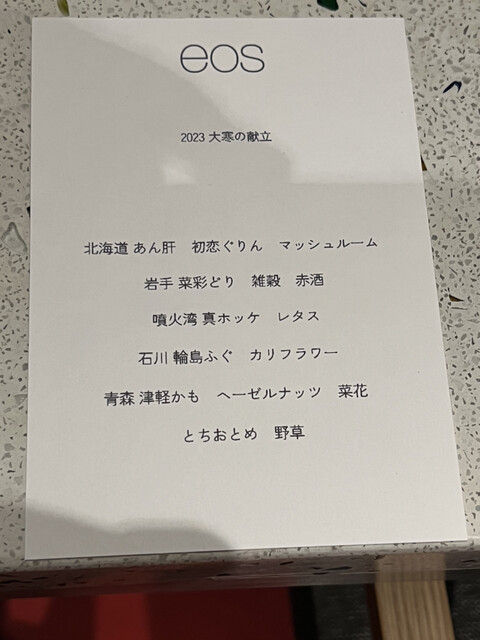 eos
2023 大寒の献立
北海道 あん肝　初恋ぐりん　マッシュルーム
岩手 菜彩どり　雑穀　赤酒
噴火湾 真ホッケ　レタス
石川 輪島ふぐ　カリフラワー
青森 津軽かも　ヘーゼルナッツ　菜花
とちおとめ　野草